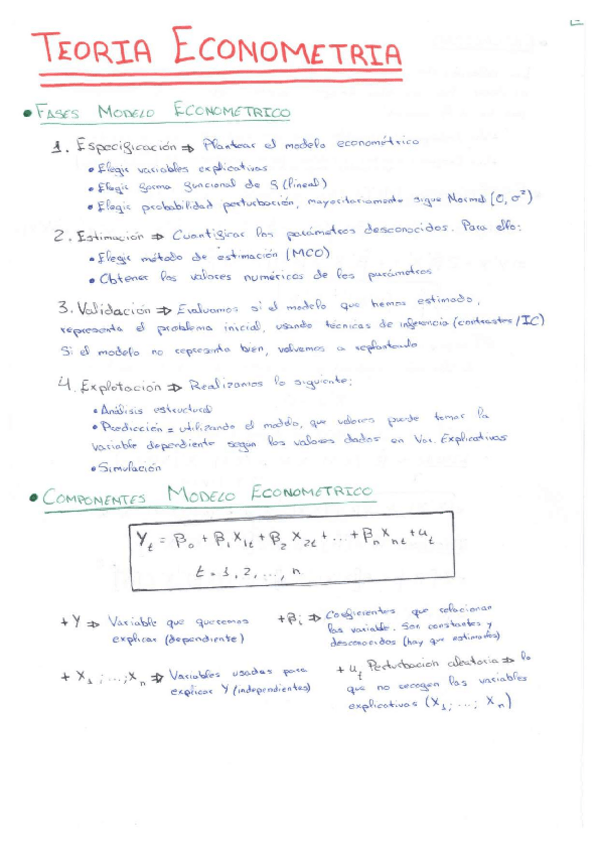 TEORIA ECONOMETRIA
• FASES MODELO ECONOMETRICO
1. Especificación ⇒ Plantear el modelo econométrico
• Elegir variables explicativas
• Elegir forma funcional de f (lineal)
• Elegir probabilidad perturbación, mayoritariamente sigue Normal (0, σ²)
2. Estimación ⇒ Cuantificar los parámetros desconocidos. Para ello:
• Elegir método de estimación (MCO)
• Obtener los valores numéricos de los parámetros
3. Validación ⇒ Evaluamos si el modelo que hemos estimado,
representa el problema inicial, usando técnicas de inferencia (contrastes/IC)
Si el modelo no representa bien, volvemos a replantearlo
4. Explotación ⇒ Realizamos lo siguiente:
• Análisis estructural
• Predicción = utilizando el modelo, que valores puede tomar la
variable dependiente segun los valores dados en Var. Explicativas
• Simulación
• COMPONENTES MODELO ECONOMETRICO
Y_t = β_0 + β_1 X_1t + β_2 X_2t + ... + β_n X_nt + u_t
t = 1, 2, ..., n
+ Y ⇒ Variable que queremos
explicar (dependiente)
+ β_i ⇒ Coeficientes que relacionan
las variable. Son constantes y
desconocidos (hay que estimarlos)
+ X_1; ...; X_n ⇒ Variables usadas para
explicar Y (independientes)
+ u_t Perturbación aleatoria ⇒ lo
que no recogen las variables
explicativas (X_1; ...; X_n)